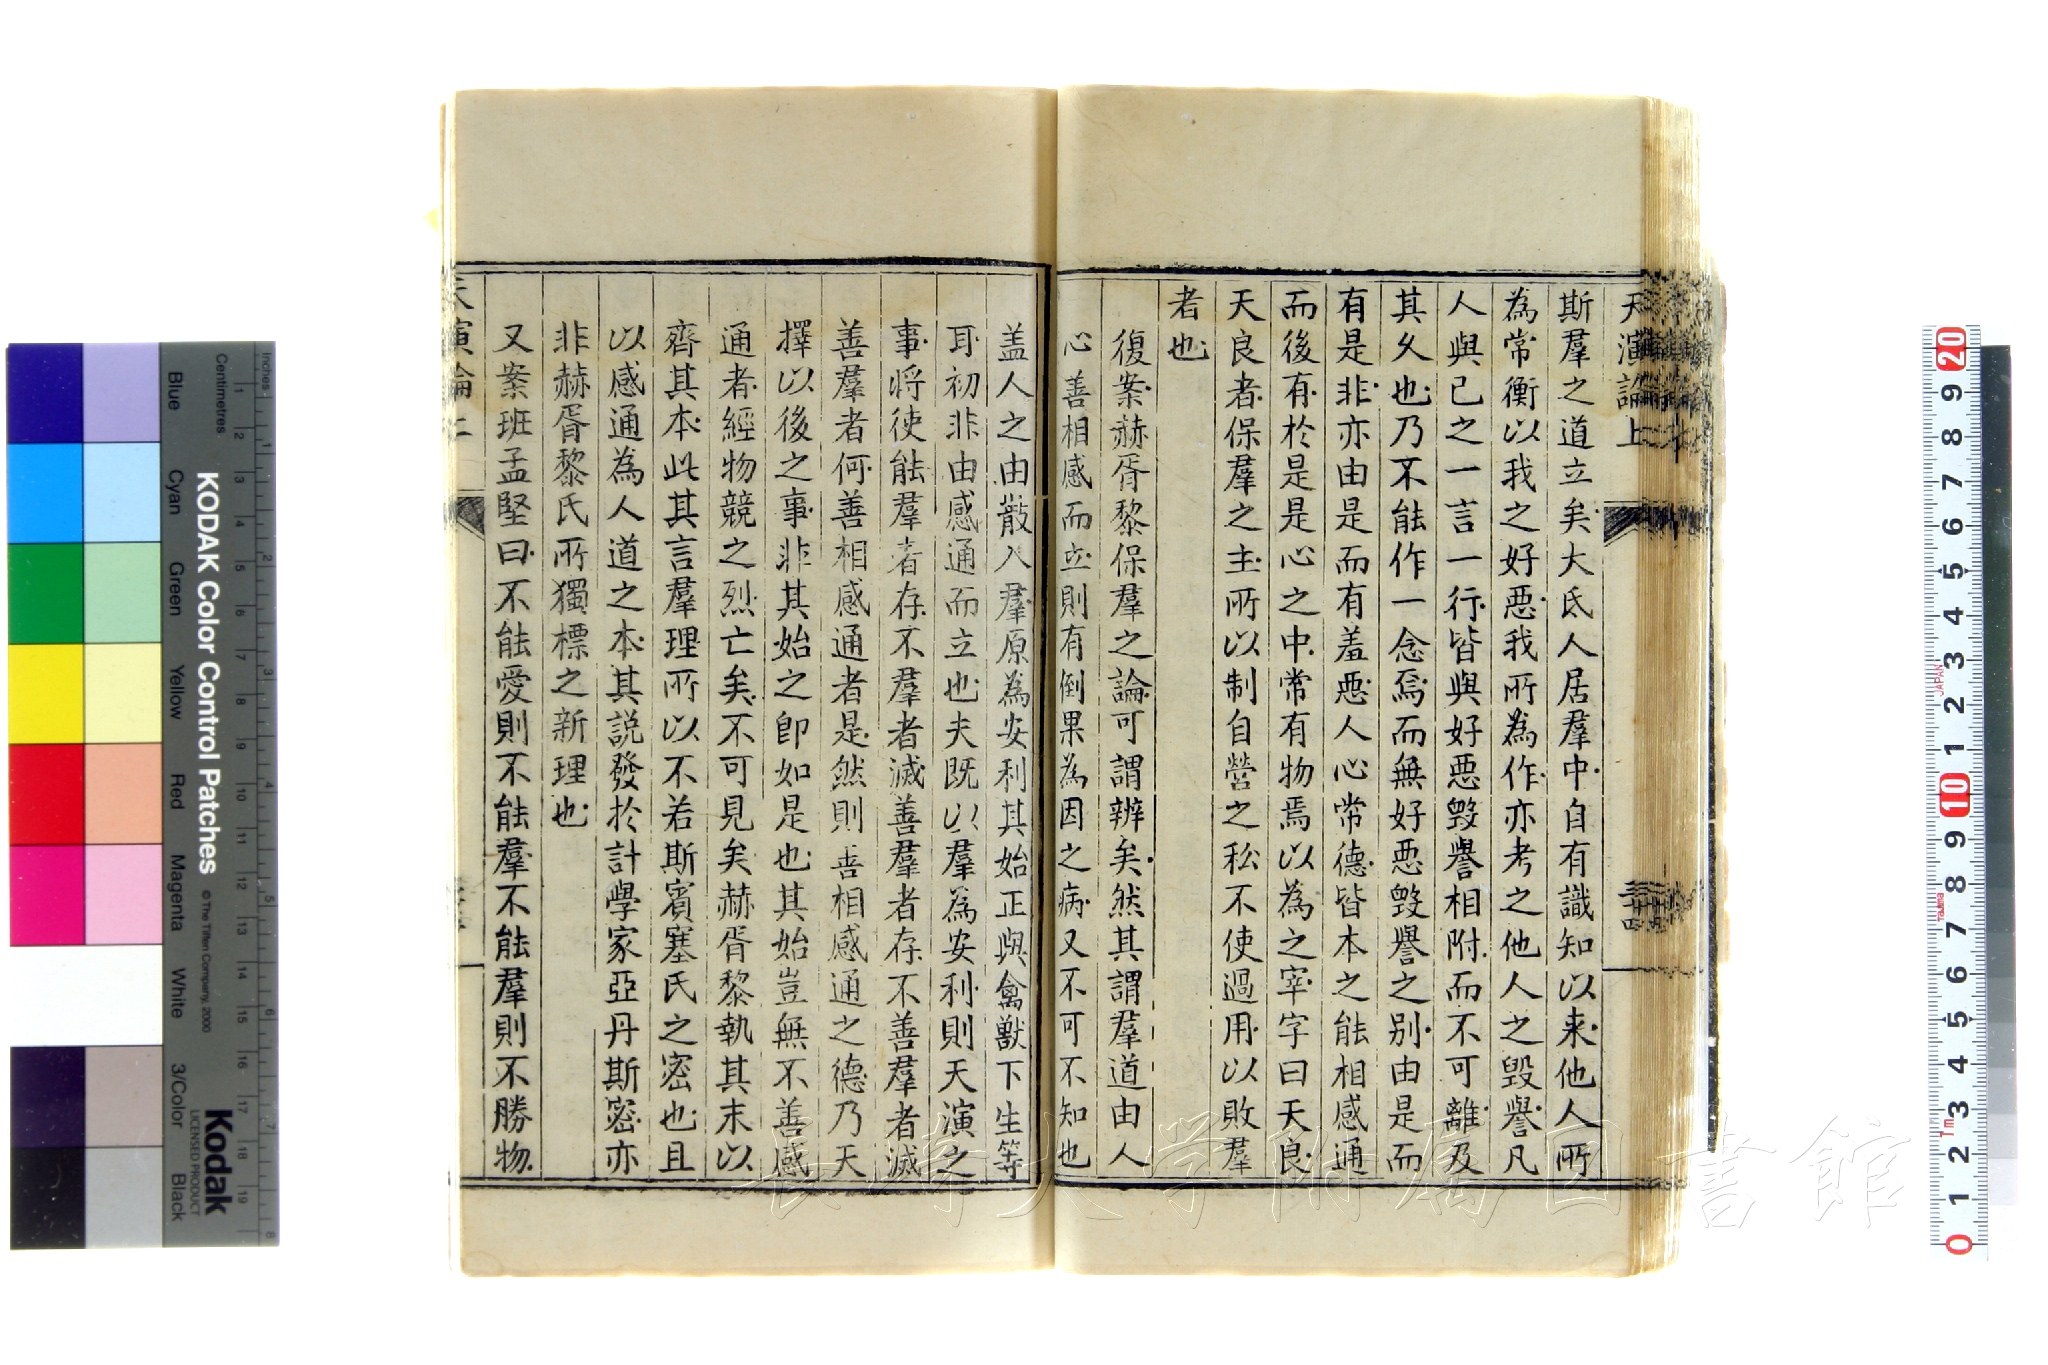 天演論上
三十四
斯羣之道立矣大氐人居羣中自有識知以來他人所
為常衡以我之好惡我所為作亦考之他人之毀譽凡
人與己之一言一行皆與好惡毀譽相附而不可離及
其久也乃不能作一念焉而無好惡毀譽之别由是而
有是非亦由是而有羞惡人心常德皆本之能相感通
而後有於是是心之中常有物焉以為之宰字曰天良
天良者保羣之主所以制自營之私不使過用以敗羣
者也
復案赫胥黎保羣之論可謂辨矣然其謂羣道由人
心善相感而立則有倒果為因之病又不可不知也
盖人之由散入羣原為安利其始正與禽獸下生等
耳初非由感通而立也夫既以羣為安利則天演之
事將使能羣者存不羣者滅善羣者存不善羣者滅
善羣者何善相感通者是然則善相感通之德乃天
擇以後之事非其始之即如是也其始豈無不善感
通者經物競之烈亡矣不可見矣赫胥黎執其末以
齊其本此其言羣理所以不若斯賓塞氏之密也且
以感通為人道之本其説發於計學家亞丹斯密亦
非赫胥黎氏所獨標之新理也
又案班孟堅曰不能愛則不能羣不能羣則不勝物
天演論上
長崎大学附属図書館
KODAK Color Control Patches
© The Tiffen Company, 2000
Kodak
LICENSED PRODUCT
Inches
Centimetres
Blue
Cyan
Green
Yellow
Red
Magenta
White
3/Color
Black
JAPAN
Tajima